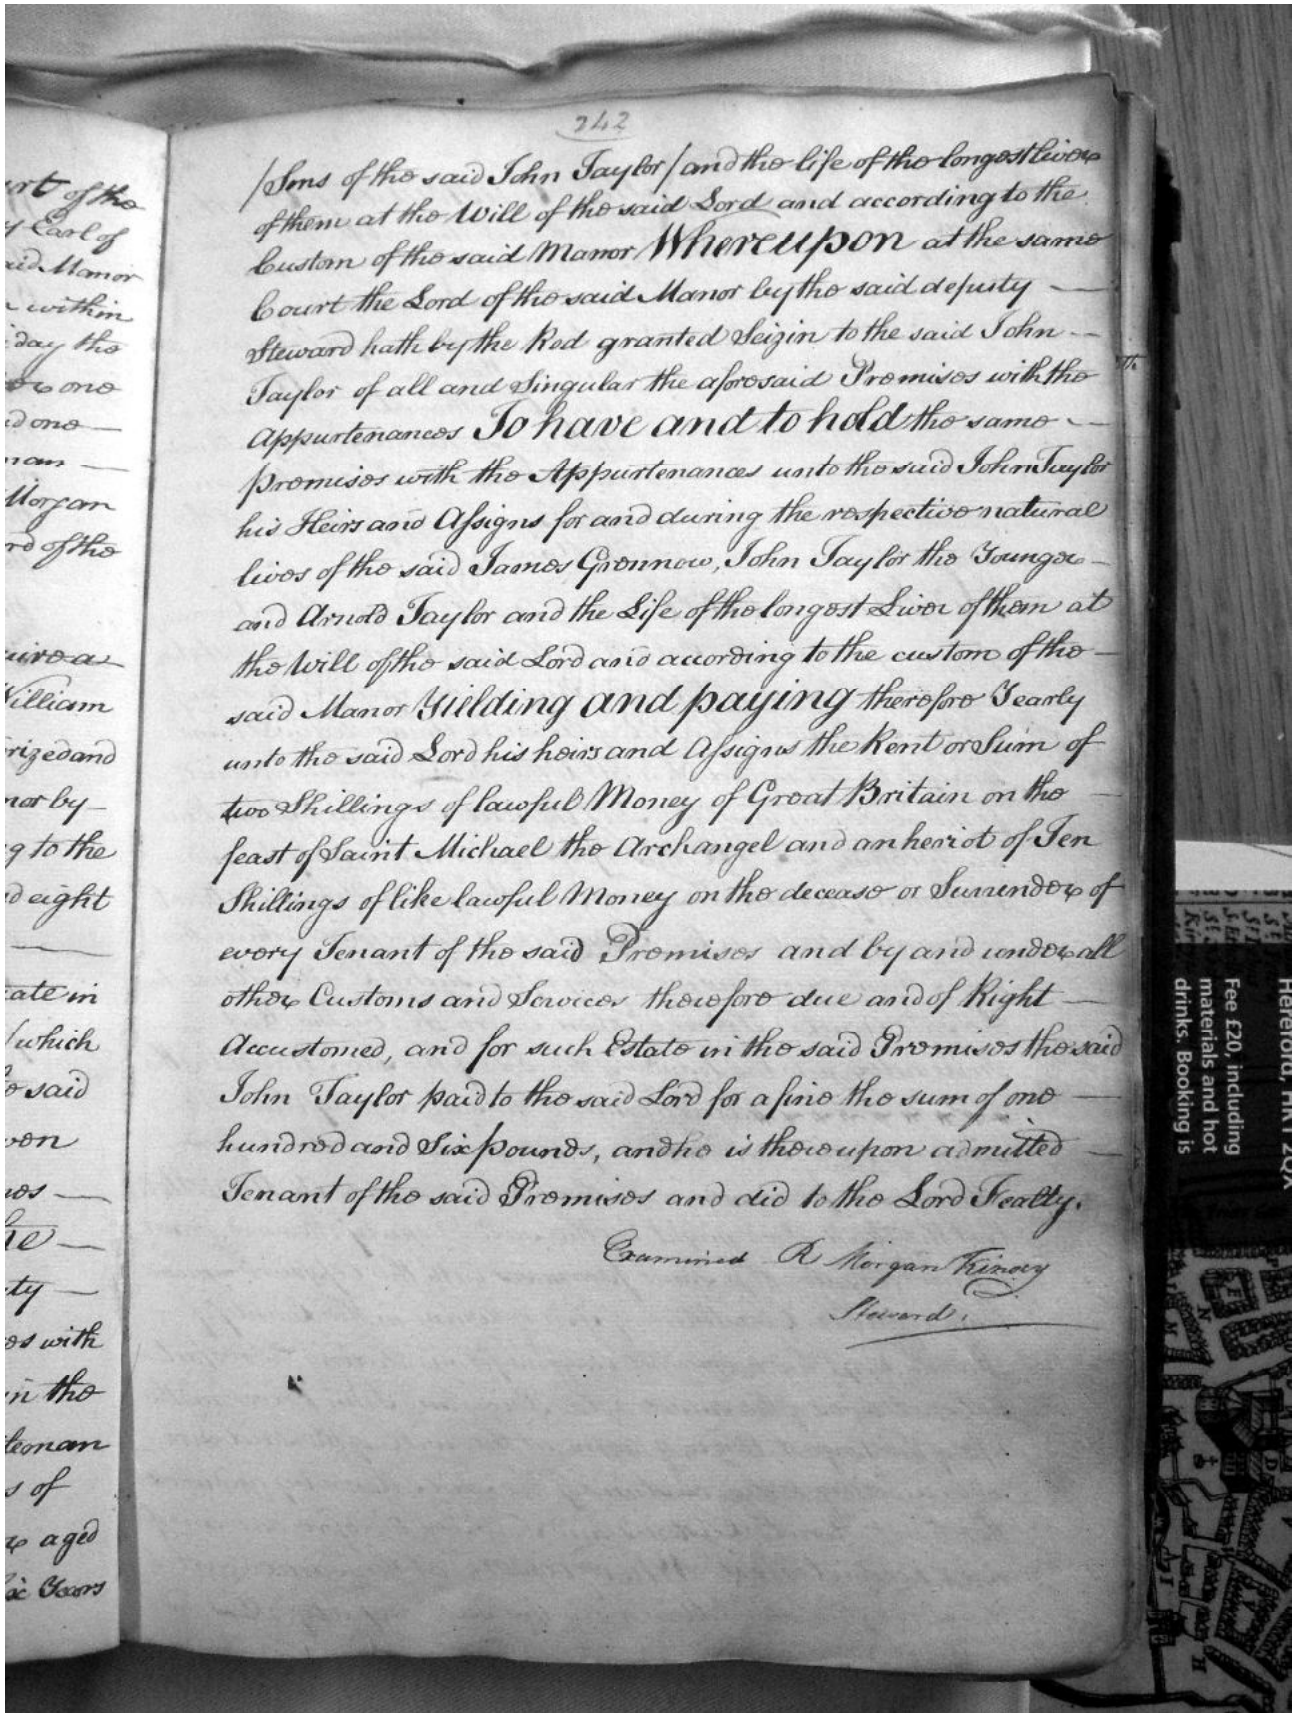 urt of the
y Earl of
aid Manor
within
day the
one
d one
man
Morgan
rd of the
uire a
William
rized and
nor by
g to the
d eight
tate in
/which
e said
ven
he
ty
es with
in the
tleman
s of
aged
ix Years
242
/Sons of the said John Taylor/ and the life of the longest liver
of them at the Will of the said Lord and according to the
Custom of the said Manor Whereupon at the same
Court the Lord of the said Manor by the said deputy
Steward hath by the Rod granted Seizin to the said John
Taylor of all and Singular the aforesaid Premises with the
Appurtenances To have and to hold the same
premises with the Appurtenances unto the said John Taylor
his Heirs and Assigns for and during the respective natural
lives of the said James Grennow, John Taylor the Younger
and Arnold Taylor and the Life of the longest Liver of them at
the Will of the said Lord and according to the custom of the
said Manor Yielding and paying therefore Yearly
unto the said Lord his heirs and Assigns the Rent or Sum of
two Shillings of lawful Money of Great Britain on the
feast of Saint Michael the Archangel and an heriot of Ten
Shillings of like lawful Money on the decease or Surrender of
every Tenant of the said Premises and by and under all
other Customs and Services therefore due and of Right
Accustomed, and for such Estate in the said Premises the said
John Taylor paid to the said Lord for a fine the sum of one
hundred and Six pounds, and he is thereupon admitted
Tenant of the said Premises and did to the Lord Fealty.
Examined R Morgan Kinsey
Steward.
Hereford, HR1 2QX
Fee £20, including
materials and hot
drinks. Booking is